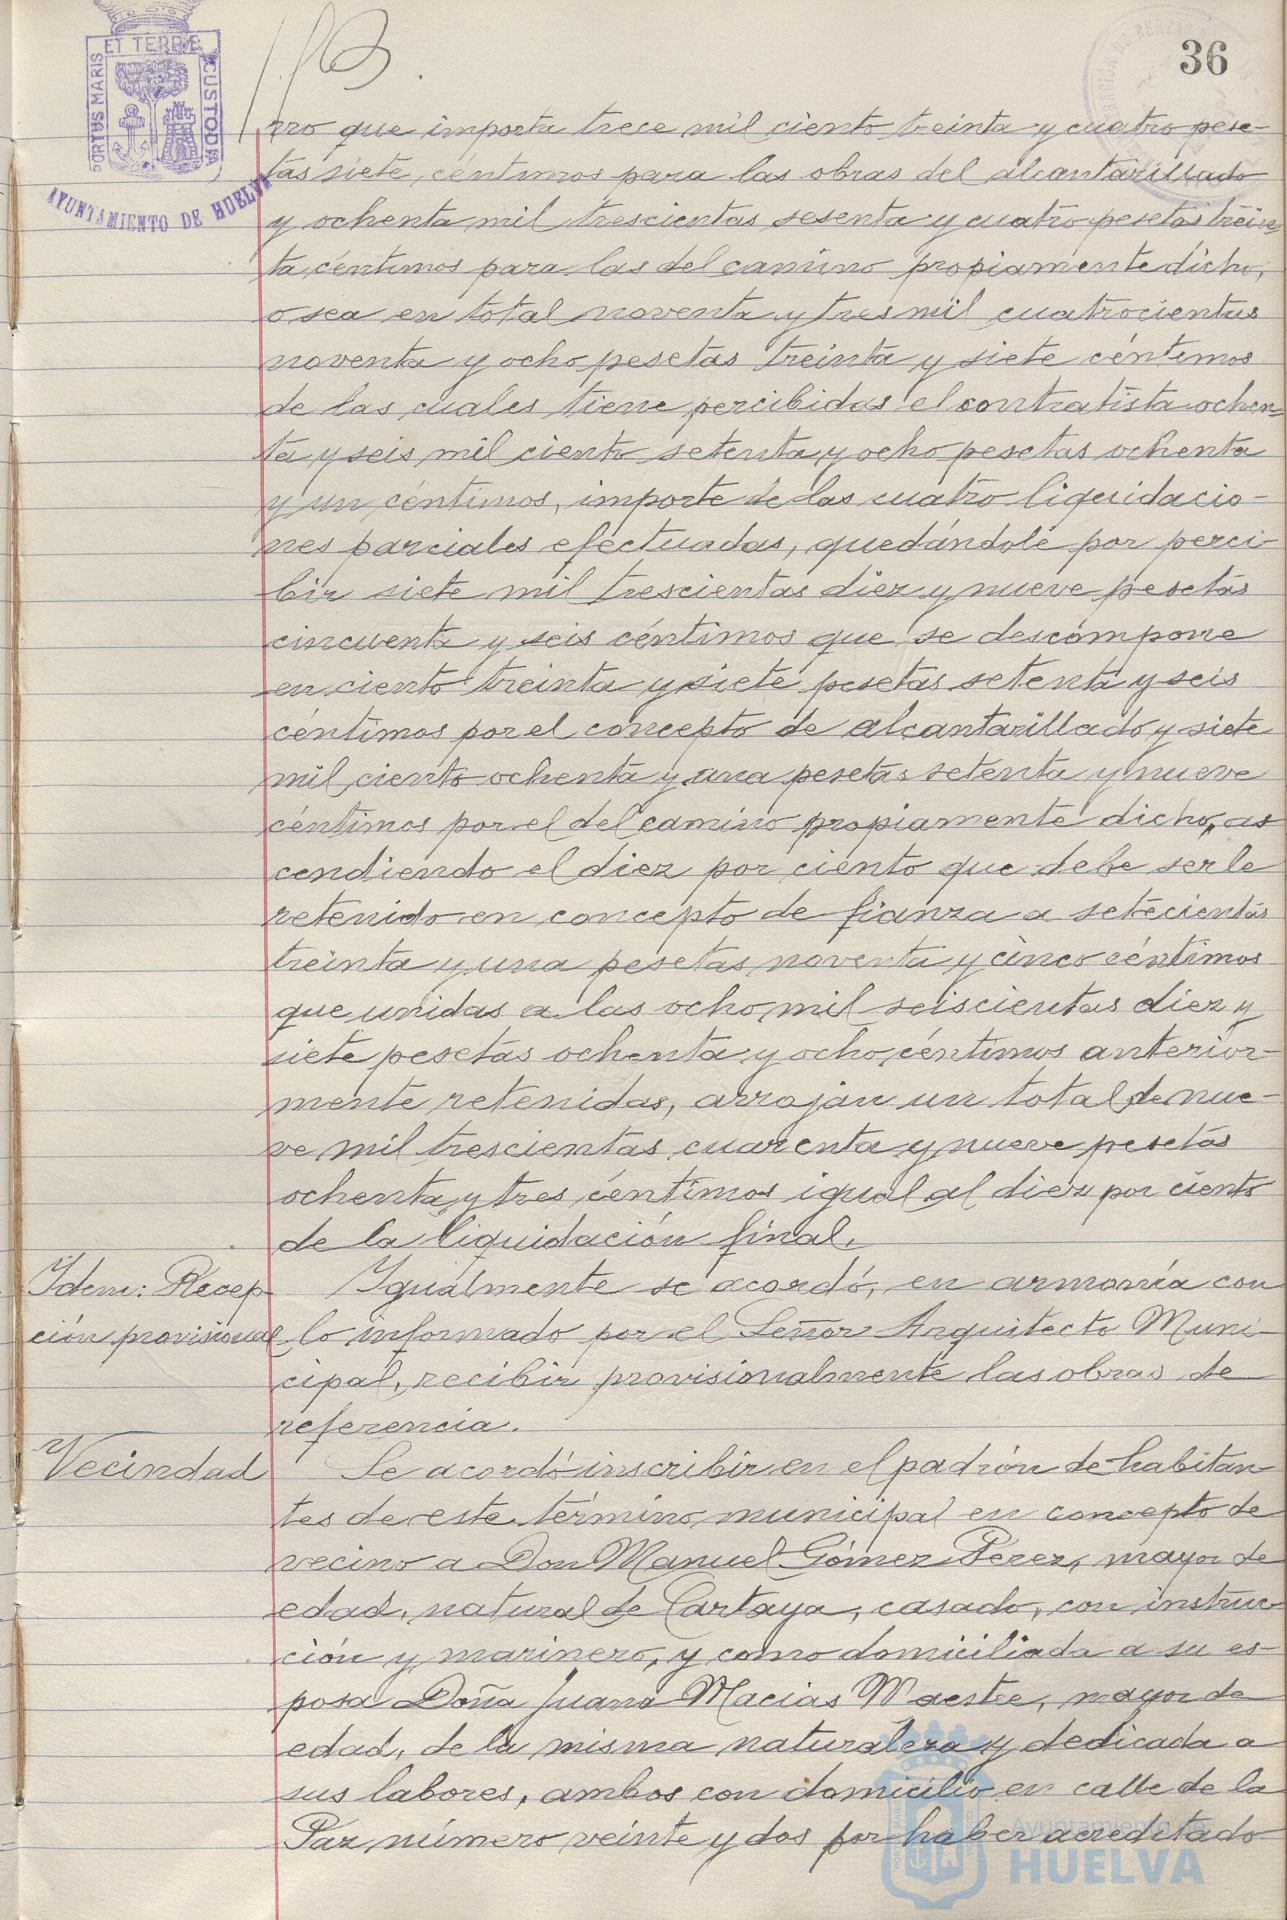 36
PORTUS MARIS
ET TERRÆ
CUSTODIA
AYUNTAMIENTO DE HUELVA
rro que importa trece mil ciento treinta y cuatro pese-
tas siete céntimos para las obras del alcantarillado
y ochenta mil trescientas sesenta y cuatro pesetas trein-
ta céntimos para las del camino propiamente dicho,
o sea en total noventa y tres mil cuatrocientas
noventa y ocho pesetas treinta y siete céntimos
de las cuales tiene percibidas el contratista ochen-
ta y seis mil ciento setenta y ocho pesetas ochenta
y un céntimos, importe de las cuatro liquidacio-
nes parciales efectuadas, quedándole por perci-
bir siete mil trescientas diez y nueve pesetas
cincuenta y seis céntimos que se descompone
en ciento treinta y siete pesetas setenta y seis
céntimos por el concepto de alcantarillado y siete
mil ciento ochenta y una pesetas setenta y nueve
céntimos por el del camino propiamente dicho, as
cendiendo el diez por ciento que debe serle
retenido en concepto de fianza a setecientas
treinta y una pesetas noventa y cinco céntimos
que unidas a las ocho mil seiscientas diez y
siete pesetas ochenta y ocho céntimos anterior-
mente retenidas, arrojan un total de nue-
ve mil trescientas cuarenta y nueve pesetas
ochenta y tres céntimos igual al diez por ciento
de la liquidación final.
Idem: Recep
ción provisional
Igualmente se acordó, en armonía con
lo informado por el Señor Arquitecto Muni-
cipal, recibir provisionalmente las obras de
referencia.
Vecindad
Se acordó inscribir en el padrón de habitan
tes de este término municipal en concepto de
vecino a Don Manuel Gómez Pérez, mayor de
edad, natural de Cartaya, casado, con instruc-
ción y marinero, y como domiciliada a su es-
posa Doña Juana Macias Maestre, mayor de
edad, de la misma naturaleza y dedicada a
sus labores, ambos con domicilio en calle de la
Paz número veinte y dos por haber acreditado
Ayuntamiento de
HUELVA